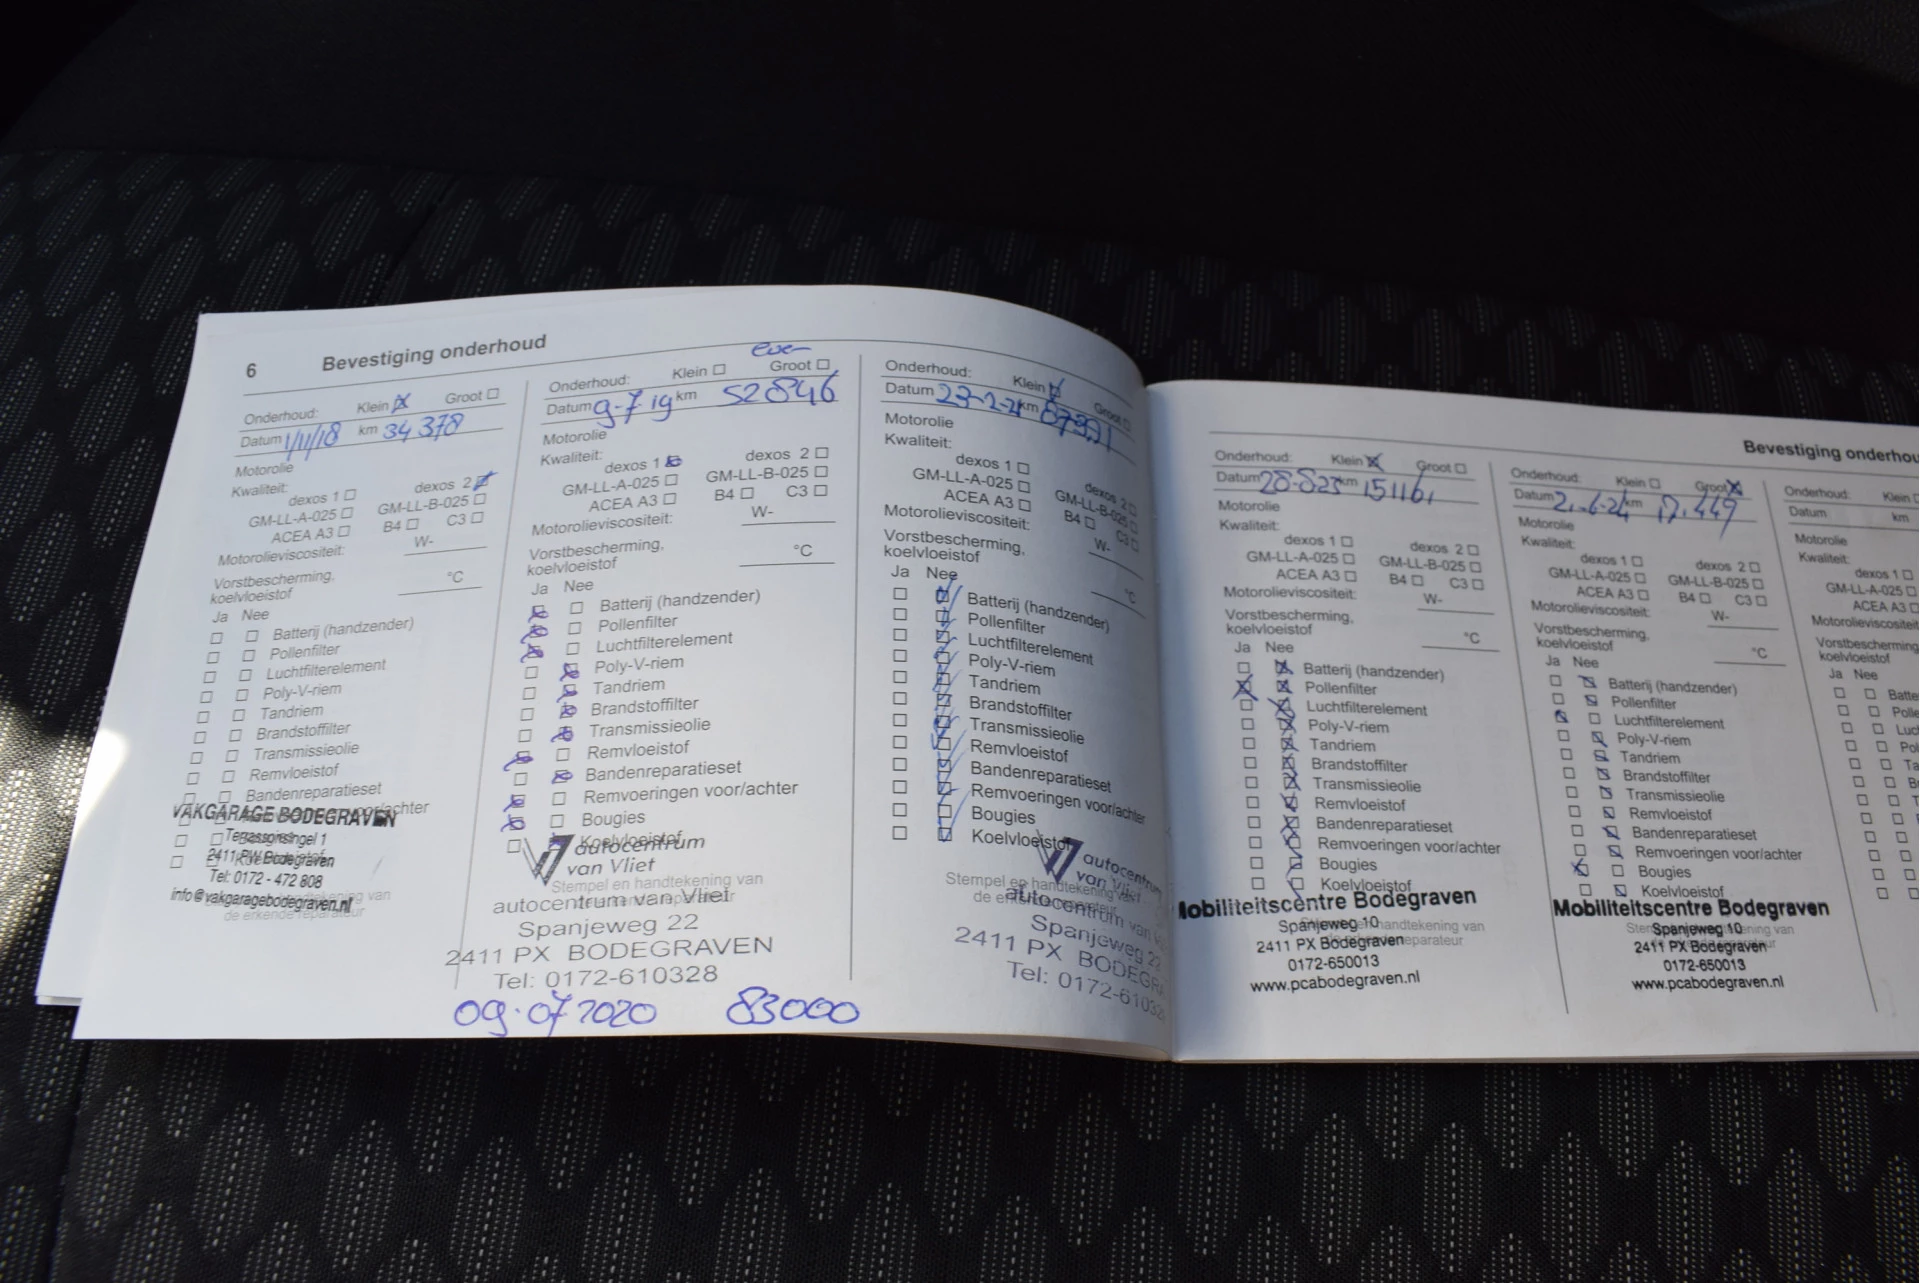 6 Bevestiging onderhoud
Onderhoud: Klein Groot
Datum 1/11/18 km 34 378
Motorolie
Kwaliteit:
dexos 1 dexos 2
GM-LL-A-025 GM-LL-B-025
ACEA A3 B4 C3
Motorolieviscositeit: W-
Vorstbescherming,
koelvloeistof °C
Ja Nee
Batterij (handzender)
Pollenfilter
Luchtfilterelement
Poly-V-riem
Tandriem
Brandstoffilter
Transmissieolie
Remvloeistof
Bandenreparatieset
voor/achter
VAKGARAGE BODEGRAVEN
2411 PW Bodegraven
Tel: 0172 - 472 808
info@vakgaragebodegraven.nl
de erkende reparateur
Onderhoud: Klein Groot
Datum 9-7 19 km 52846
Motorolie
Kwaliteit:
dexos 1 dexos 2
GM-LL-A-025 GM-LL-B-025
ACEA A3 B4 C3
Motorolieviscositeit: W-
Vorstbescherming,
koelvloeistof °C
Ja Nee
Batterij (handzender)
Pollenfilter
Luchtfilterelement
Poly-V-riem
Tandriem
Brandstoffilter
Transmissieolie
Remvloeistof
Bandenreparatieset
Remvoeringen voor/achter
Bougies
Koelvloeistof
autocentrum
van Vliet
Stempel en handtekening van
autocentrum van Vliet
Spanjeweg 22
2411 PX BODEGRAVEN
Tel: 0172-610328
09.07 2020 83000
Onderhoud: Klein Groot
Datum 23-2-21 km
Motorolie
Kwaliteit:
dexos 1 dexos 2
GM-LL-A-025 GM-LL-B-025
ACEA A3 B4 C3
Motorolieviscositeit: W-
Vorstbescherming,
koelvloeistof °C
Ja Nee
Batterij (handzender)
Pollenfilter
Luchtfilterelement
Poly-V-riem
Tandriem
Brandstoffilter
Transmissieolie
Remvloeistof
Bandenreparatieset
Remvoeringen voor/achter
Bougies
Koelvloeistof
autocentrum
van Vliet
Stempel en handtekening van
autocentrum van
Spanjeweg 22
2411 PX BODEGRA
Tel: 0172-610328
Bevestiging onderhou
Onderhoud: Klein Groot
Datum km 151161
Motorolie
Kwaliteit:
dexos 1 dexos 2
GM-LL-A-025 GM-LL-B-025
ACEA A3 B4 C3
Motorolieviscositeit: W-
Vorstbescherming,
koelvloeistof °C
Ja Nee
Batterij (handzender)
Pollenfilter
Luchtfilterelement
Poly-V-riem
Tandriem
Brandstoffilter
Transmissieolie
Remvloeistof
Bandenreparatieset
Remvoeringen voor/achter
Bougies
Koelvloeistof
Mobiliteitscentre Bodegraven
Spanjeweg 10
2411 PX Bodegraven
0172-650013
www.pcabodegraven.nl
Onderhoud: Klein Groot
Datum km
Motorolie
Kwaliteit:
dexos 1 dexos 2
GM-LL-A-025 GM-LL-B-025
ACEA A3 B4 C3
Motorolieviscositeit: W-
Vorstbescherming,
koelvloeistof °C
Ja Nee
Batterij (handzender)
Pollenfilter
Luchtfilterelement
Poly-V-riem
Tandriem
Brandstoffilter
Transmissieolie
Remvloeistof
Bandenreparatieset
Remvoeringen voor/achter
Bougies
Koelvloeistof
Mobiliteitscentre Bodegraven
Spanjeweg 10
2411 PX Bodegraven
0172-650013
www.pcabodegraven.nl
Onderhoud: Klein
Datum km
Motorolie
Kwaliteit:
dexos 1
GM-LL-A-025
ACEA A3
Motorolieviscositeit
Vorstbescherming
koelvloeistof
Ja Nee
Batte
Polle
Luc
Po
Ta
B
T